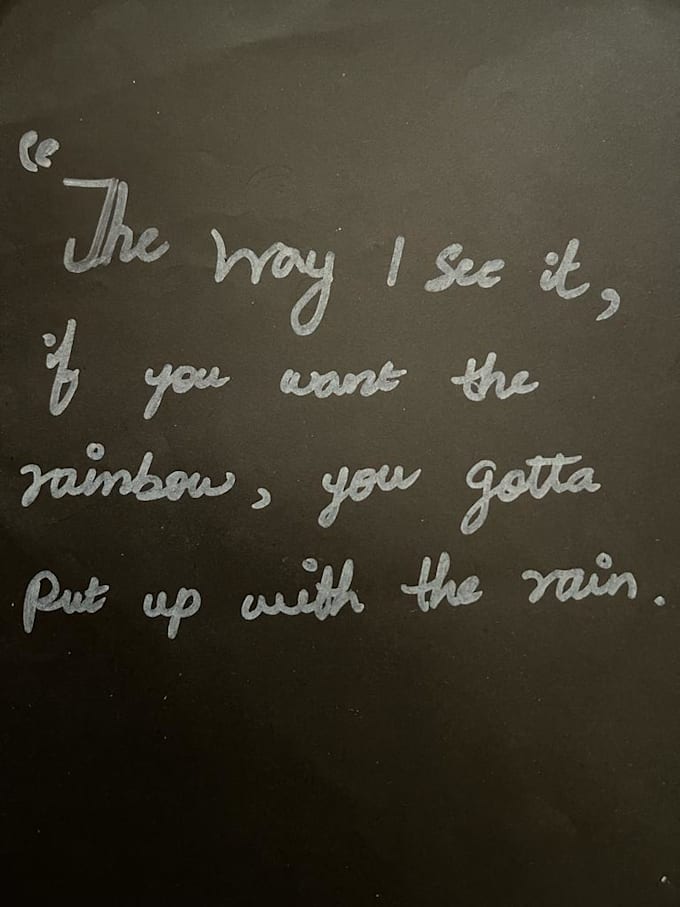 “The way I see it,
if you want the
rainbow, you gotta
put up with the rain.